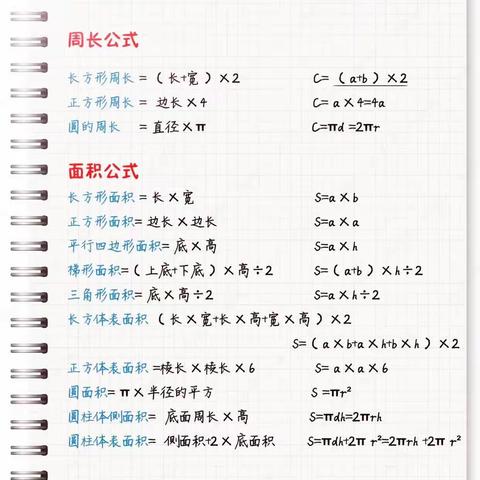 周长公式
长方形周长 = (长+宽)×2 C= (a+b)×2
正方形周长 = 边长×4 C= a×4=4a
圆的周长 = 直径×π C=πd =2πr
面积公式
长方形面积 = 长×宽 S=a×b
正方形面积= 边长×边长 S=a×a
平行四边形面积= 底×高 S=a×h
梯形面积=(上底+下底)×高÷2 S=(a+b)×h÷2
三角形面积= 底×高÷2 S=a×h÷2
长方体表面积(长×宽+长×高+宽×高)×2
S=(a×b+a×h+b×h)×2
正方体表面积 =棱长×棱长×6 S= a×a×6
圆面积= π×半径的平方 S =πr²
圆柱体侧面积= 底面周长×高 S=πdh=2πrh
圆柱体表面积= 侧面积+2×底面积 S=πdh+2π r²=2πrh +2π r²